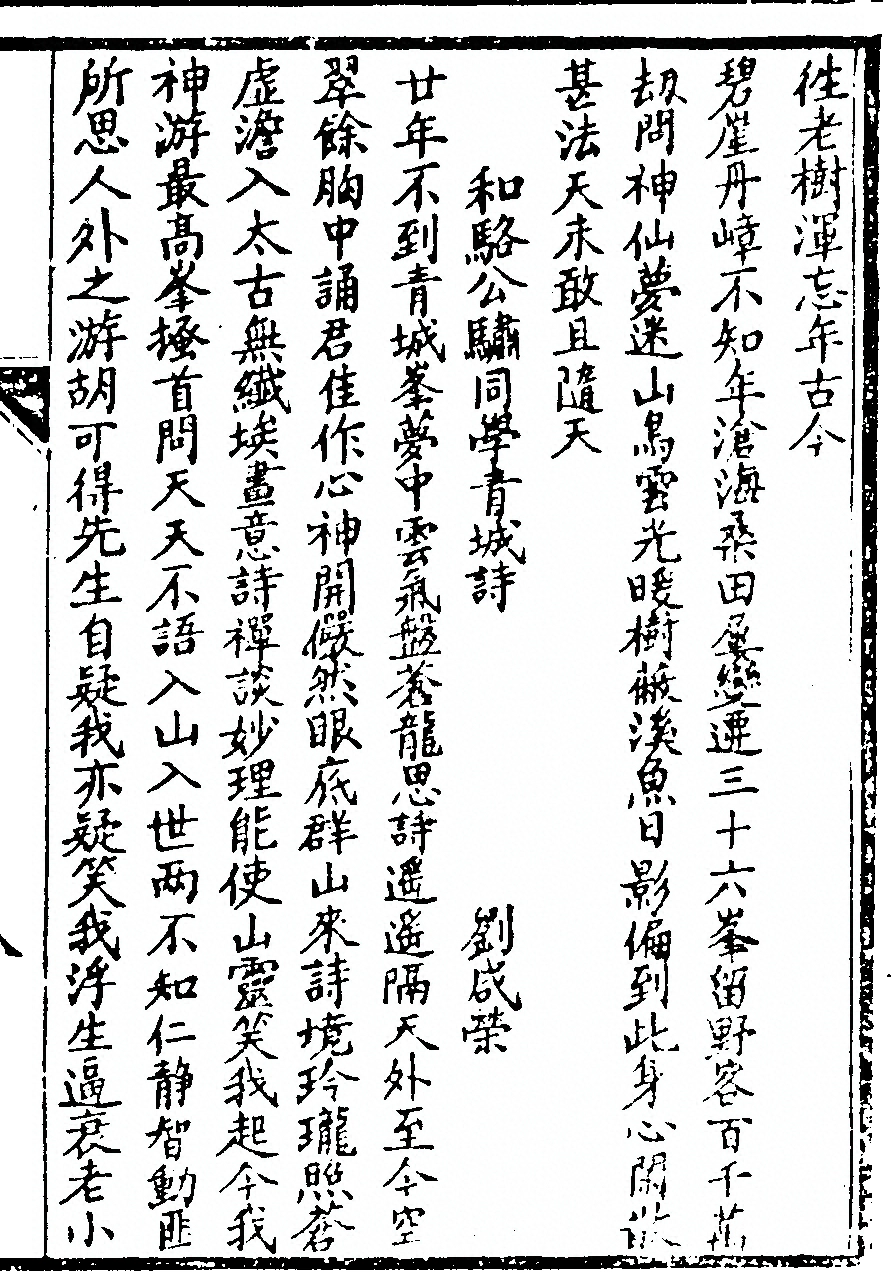 往老樹渾忘年古今
碧崖丹嶂不知年滄海桑田屢變遷三十六峯留野客百千萬
劫問神仙夢迷山鳥雲光暖樹蔽溪魚日影偏到此身心閑散
甚法天未敢且隨天
和駱公驌同學青城詩
劉咸榮
廿年不到青城峯夢中雲氣盤蒼龍思詩遥遥隔天外至今空
翠餘胸中誦君佳作心神開儼然眼底群山來詩境玲瓏照蒼
虛澹入太古無纖埃畫意詩禪談妙理能使山靈笑我起今我
神游最高峯搔首問天天不語入山入世兩不知仁静智動匪
所思人外之游胡可得先生自疑我亦疑笑我浮生逼衰老小